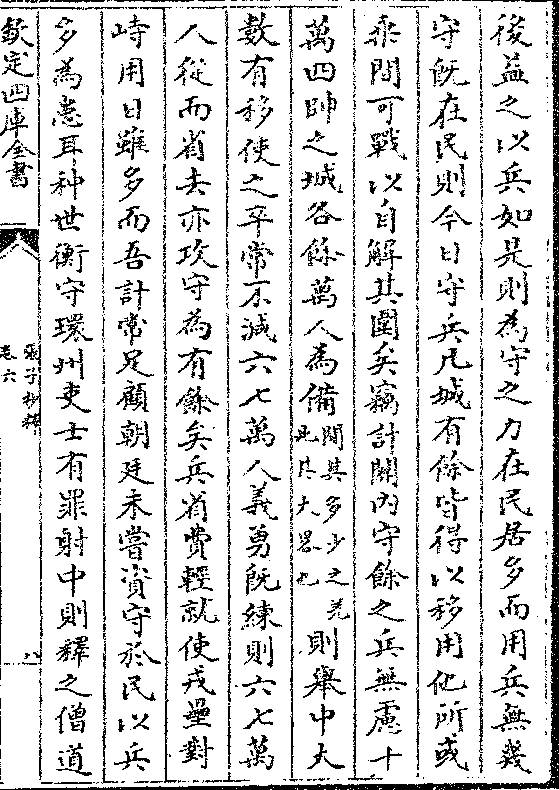 後益之以兵如是則為守之力在民居多而用兵無幾
守既在民則今日守兵凡城有餘皆得以移用他所或
乘間可戰以自解其圍矣竊計關内守餘之兵無慮十
萬四帥之城各餘萬人為備間其多少之差此其大畧也則舉中大
數有移使之卒常不減六七萬人義勇既練則六七萬
人從而省去亦攻守為有餘矣兵省費輕就使戎壘對
峙用日雖多而吾計常足顧朝廷未嘗資守於民以兵
多為患耳种世衡守環州吏士有罪射中則釋之僧道
欽定四庫全書
張子抄釋
卷六
八